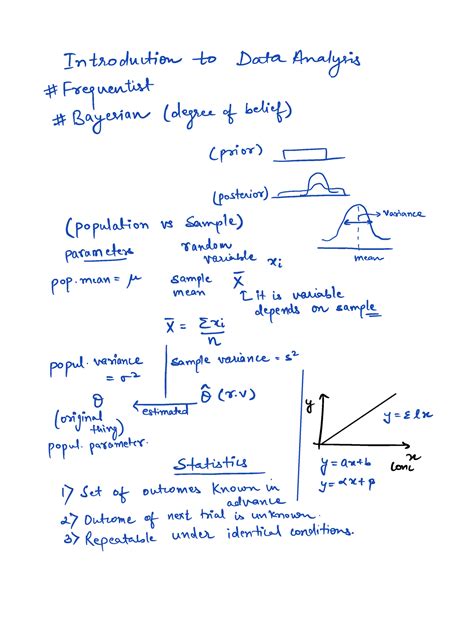 Introduction to Data Analysis
# Frequentist
# Bayesian (degree of belief)
(prior)
(posterior)
variance
mean
(population vs Sample)
parameters
random variable xi
pop. mean = μ
sample mean X̄
it is variable
depends on sample
X̄ = Σxi/n
popul. variance = σ²
sample variance = s²
θ
estimated
θ̂ (r.v)
(original thing)
popul. parameter.
y
y = Σlx
x
conc
y = ax+b
y = αx+β
Statistics
1) Set of outcomes Known in advance
2) Outcome of next trial is unknown.
3) Repeatable under identical conditions.